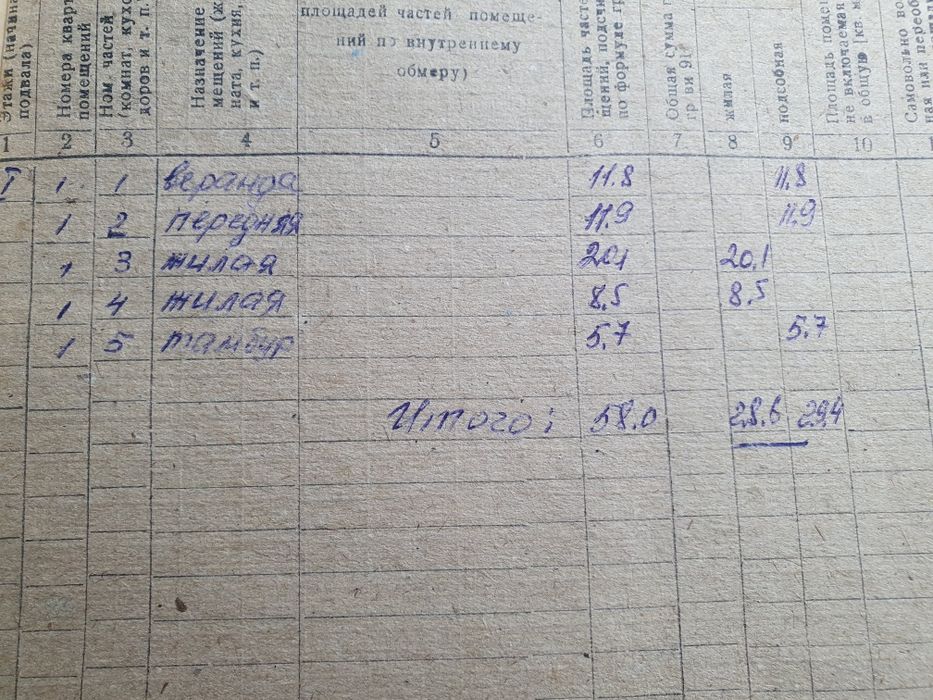 Этажи (начина
подвала)
Номера кварт
помещений
Ном. частей
(комнат, кухо
доров и т. п.
Назначение
мещений (ж
ната, кухня,
и т. п.)
площадей частей помеще-
ний по внутреннему
обмеру)
Площадь часте
щений, подсчи
по формуле гр
Общая сумма п
гр ви 9)
жилая
подсобная
Площадь помещ
не включаемая
в общую (кв. м
Самовольно во
ная или переоб
1 2 3 4 5 6 7 8 9 10 1
I 1 1 веранда 11.8 11,8
1 2 передняя 11.9 11,9
1 3 жилая 20,1 20,1
1 4 жилая 8,5 8,5
1 5 тамбур 5,7 5,7
Итого: 58.0 28.6 29.4